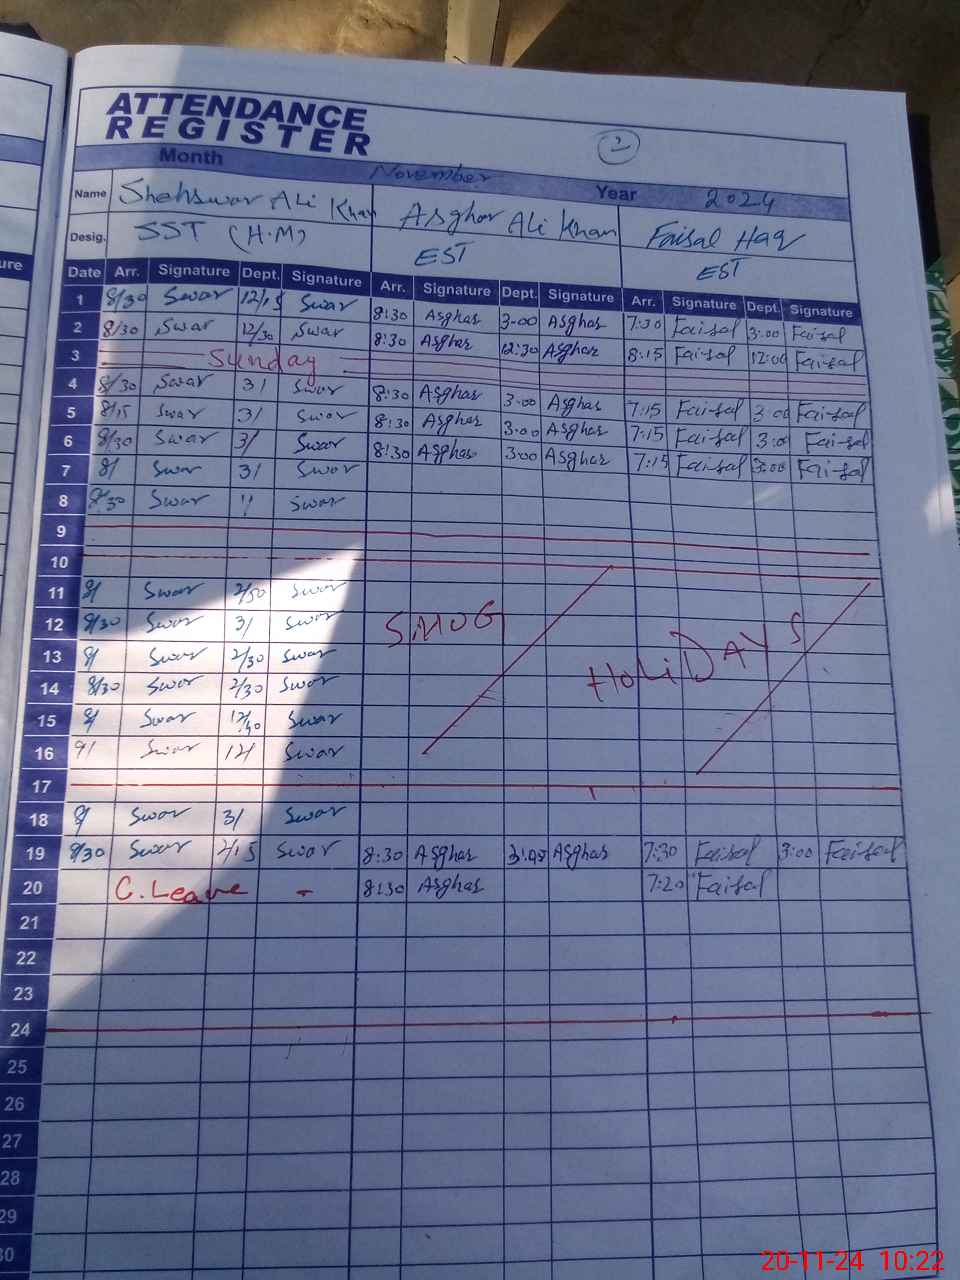 ATTENDANCE
REGISTER
2
Month November Year 2024
Name Shehswar Ali Khan Asghar Ali Khan Faisal Haq
Desig. SST (H.M) EST EST
ure Date Arr. Signature Dept. Signature Arr. Signature Dept. Signature Arr. Signature Dept. Signature
1 8/30 Swar 12/15 Swar 8:30 Asghar 3:00 Asghar 7:30 Faisal 3:00 Faisal
2 8/30 Swar 12/30 Swar 8:30 Asghar 12:30 Asghar 8:15 Faisal 12:00 Faisal
3 Sunday
4 8/30 Swar 3/ Swar 8:30 Asghar 3:00 Asghar 7:15 Faisal 3:00 Faisal
5 8/15 Swar 3/ Swar 8:30 Asghar 3:00 Asghar 7:15 Faisal 3:00 Faisal
6 8/30 Swar 3/ Swar 8:30 Asghar 3:00 Asghar 7:15 Faisal 3:00 Faisal
7 8/ Swar 3/ Swar
8 8/30 Swar Swar
9
10
11 8/ Swar 2/30 Swar
12 8/30 Swar 3/ Swar SMOG
13 8/ Swar 2/30 Swar HOLIDAYS
14 8/30 Swar 2/30 Swar
15 8/ Swar Swar
16 9/ Swar 12/ Swar
17
18 8/ Swar 3/ Swar
19 8/30 Swar 2/15 Swar 8:30 Asghar Asghar 7:30 Faisal 3:00 Faisal
20 C. Leave - 8:30 Asghar 7:20 Faisal
21
22
23
24
25
26
27
28
29
30
20-11-24 10:22